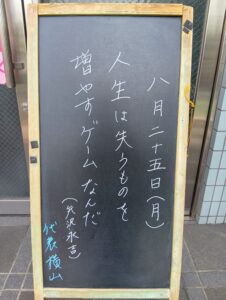 八月二十五日(月)
人生は失うものを
増やすゲームなんだ。
(矢沢永吉)
代表横山